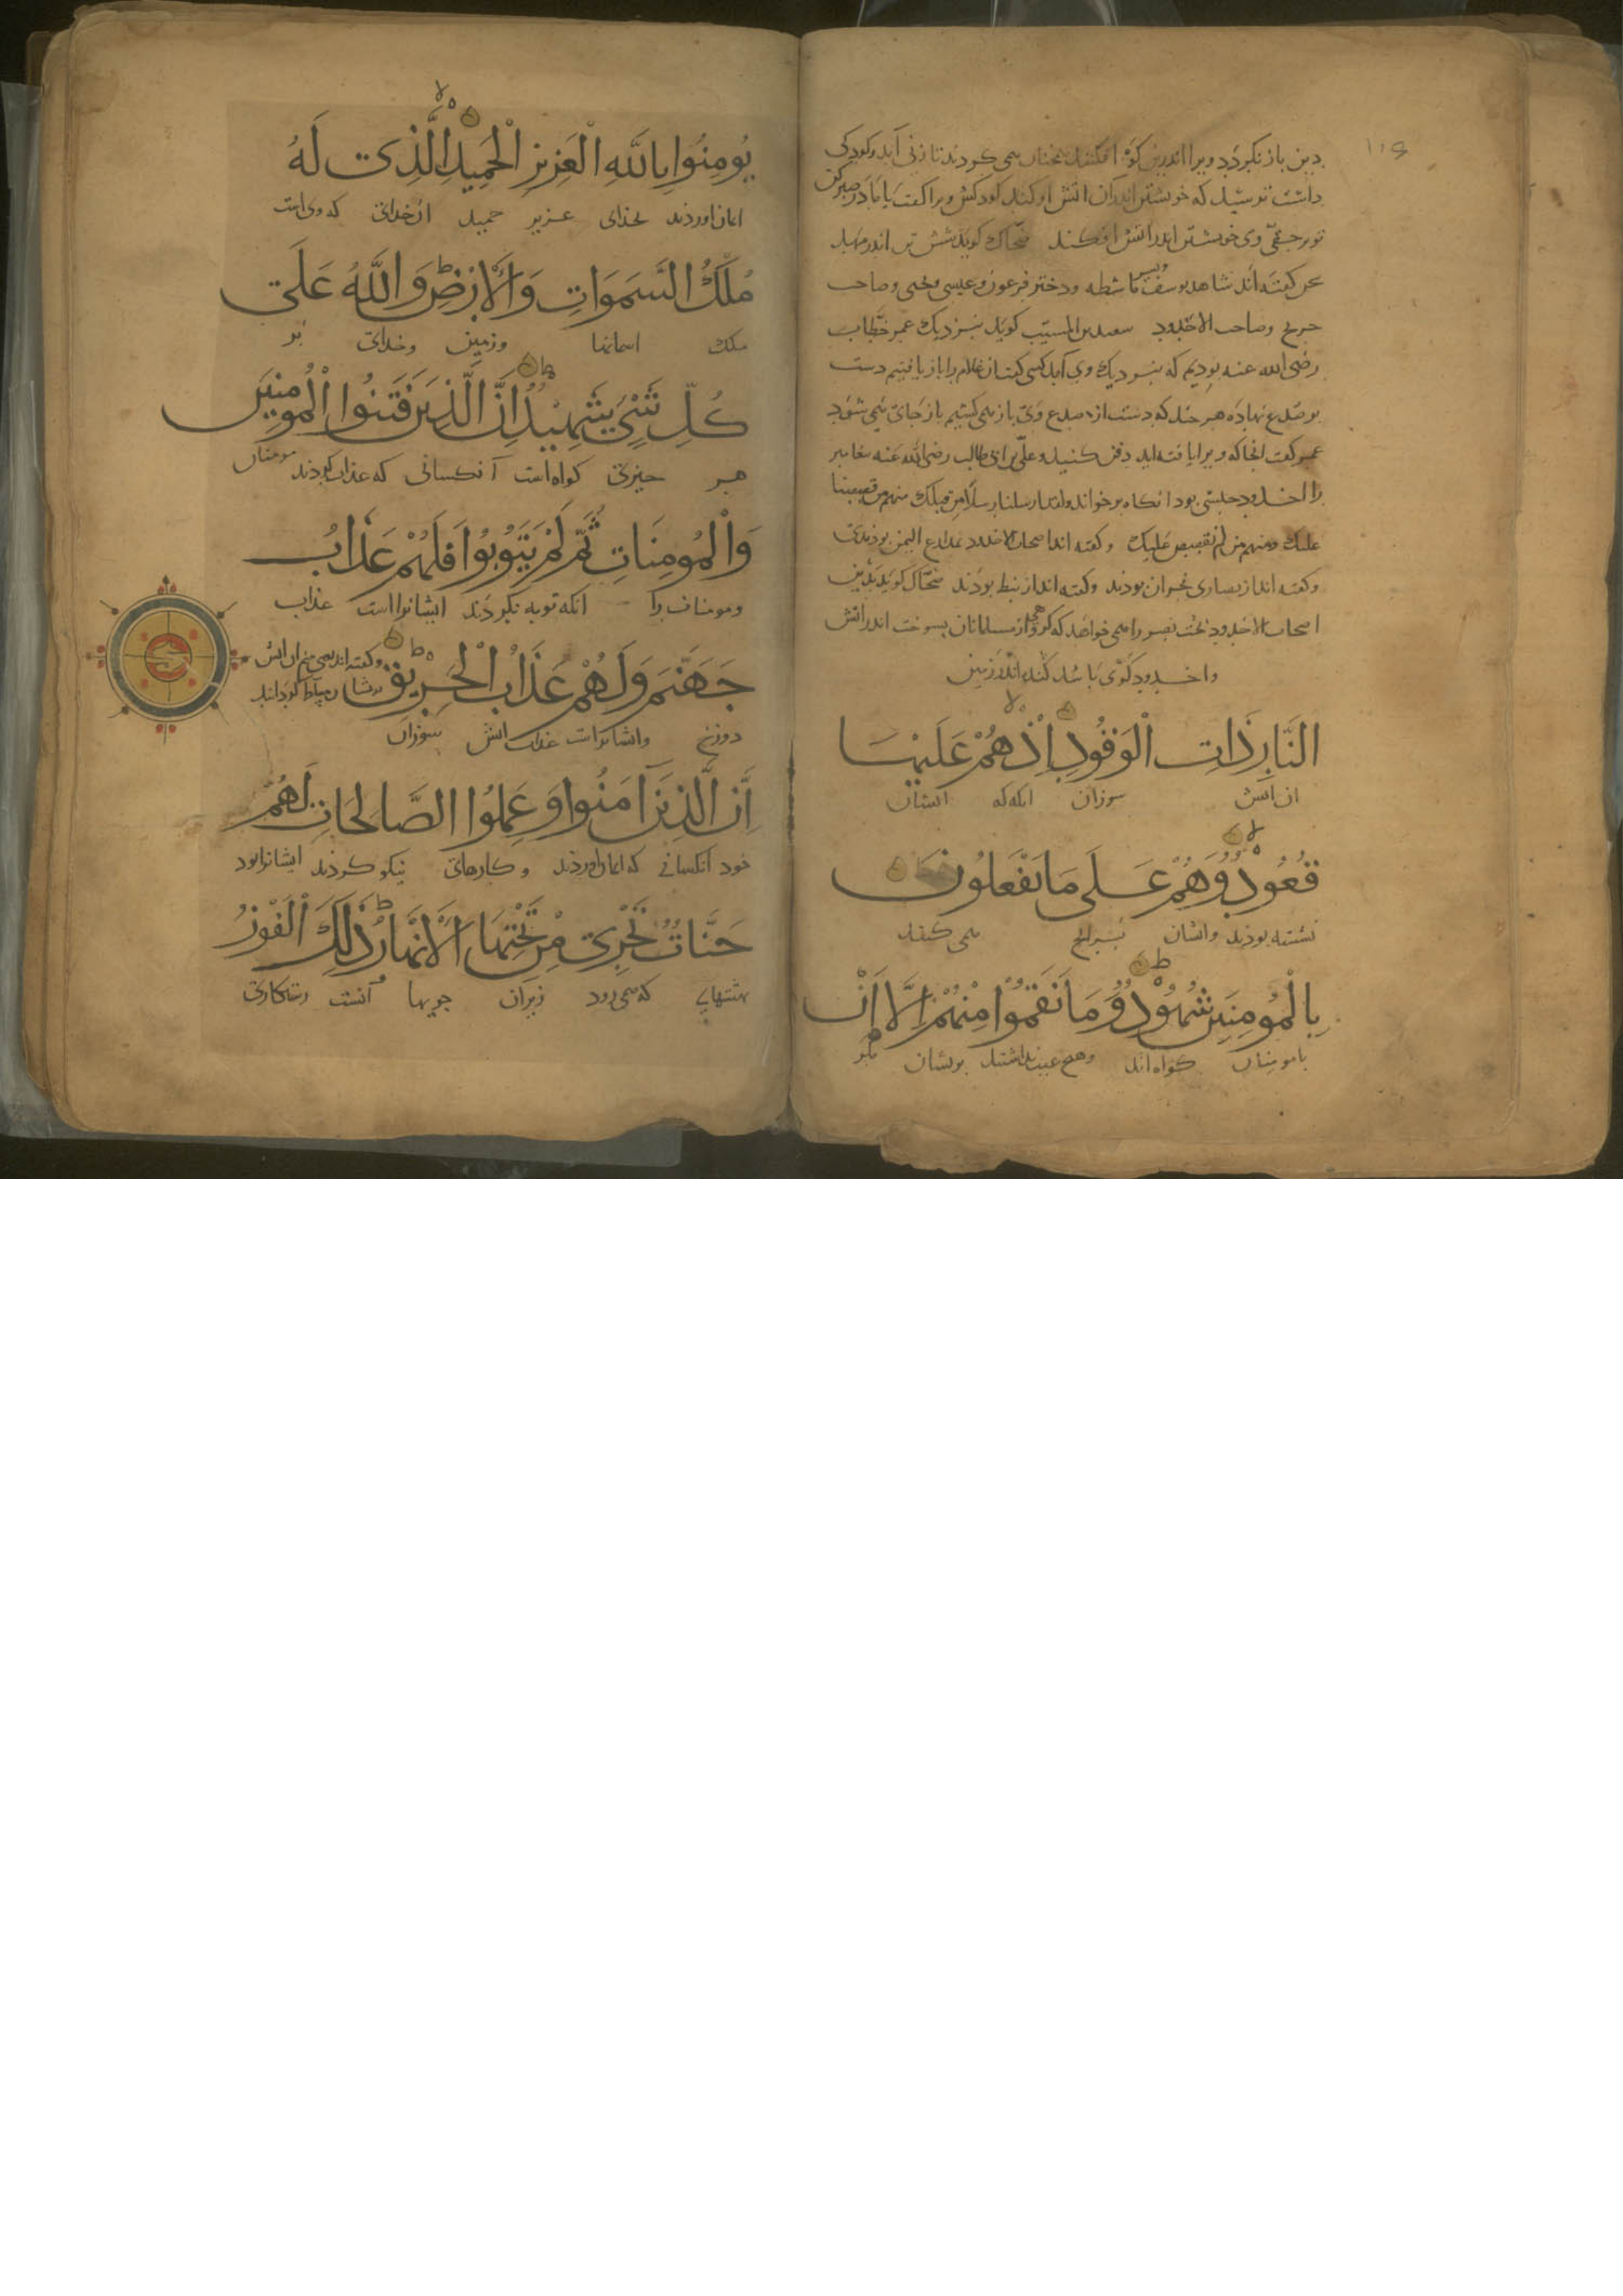 دین باز نکردد ویرا اندرین کو افکنند همچنان همی کردند تا زنی آید و کودکی
داشت ترسید که خویشتن اندران آتش او کند کودکش ویرا کفت یا مادر صبر کن
تو بر حقی وی خویشتن اندر آتش افکند ضحاک کوید شش تن اندر مهد
سخن کفته اند شاهد یوسف و پسر ماشطه دختر فرعون و عیسی و یحیی و صاحب
جریج و صاحب الاخدود سعید بن المسیب کوید بنزدیک عمر خطاب
رضی الله عنه بودیم که بنزدیک وی آمد کسی کفت آن غلام را باز یافتیم دست
بر صدغ نهاده هر چند که دست از صدغ وی باز همی کشیم باز جای همی شود
عمر کفت انجا که ویرا یافته اید دفن کنید و علی بن ابی طالب رضی الله عنه
را اخدود حبشی بود آنکاه بر خواند ولقد ارسلنا رسلا من قبلک منهم من قصصنا
علیک ومنهم من لم نقصص علیک و کفته اند اصحاب الاخدود الیمن بودند
و کفته اند از نصاری نجران بودند و کفته اند از نبط بودند ضحاک کوید بدین
اصحاب الاخدود بخت نصر را همی خواهد که کروهی از مسلمانان بسوخت اندر آتش
و اخدود کوی باشد کنده اندر زمین
النَّارِ ذَاتِ الْوَقُودِ اِذْ هُمْ عَلَيْهَا
ان آتش سوزان انکه که ایشان
قُعُودٌ وَهُمْ عَلَى مَا يَفْعَلُونَ
نشسته بودند وایشان بسرانج همی کنند
بِالْمُومِنِينَ شُهُودٌ وَمَا نَقَمُوا مِنْهُمْ اِلَّا اَنْ
بامومنان کواه اند وهیچ عیب نداشتند بریشان مکر
يُومِنُوا بِاللَّهِ الْعَزِيزِ الْحَمِيدِ الَّذِى لَهُ
ایمان اوردند بخدای عزیز حمید ان خدای که وی است
مُلْكُ السَّمَوَاتِ وَالْاَرْضِ وَاللَّهُ عَلَى
ملک اسمانها وزمین وخدای بر
كُلِّ شَىْءٍ شَهِيدٌ اِنَّ الَّذِينَ فَتَنُوا الْمُومِنِينَ
هر چیزی کواه است آنکسانی که عذاب کردند مومنان
وَالْمُومِنَاتِ ثُمَّ لَمْ يَتُوبُوا فَلَهُمْ عَذَابُ
ومومنات را انکه توبه نکردند ایشانرا است عذاب
جَهَنَّمَ وَلَهُمْ عَذَابُ الْحَرِيقِ
دوزخ وایشانراست عذاب آتش سوزان
اِنَّ الَّذِينَ آمَنُوا وَعَمِلُوا الصَّالِحَاتِ لَهُمْ
خود آنکسانی که ایمان اوردند وکارهای نیکو کردند ایشانرا بود
جَنَّاتٌ تَجْرِى مِنْ تَحْتِهَا الْاَنْهَارُ ذَلِكَ الْفَوْزُ
بهشتهایی که همی رود زیران جویها آنست رستکاری